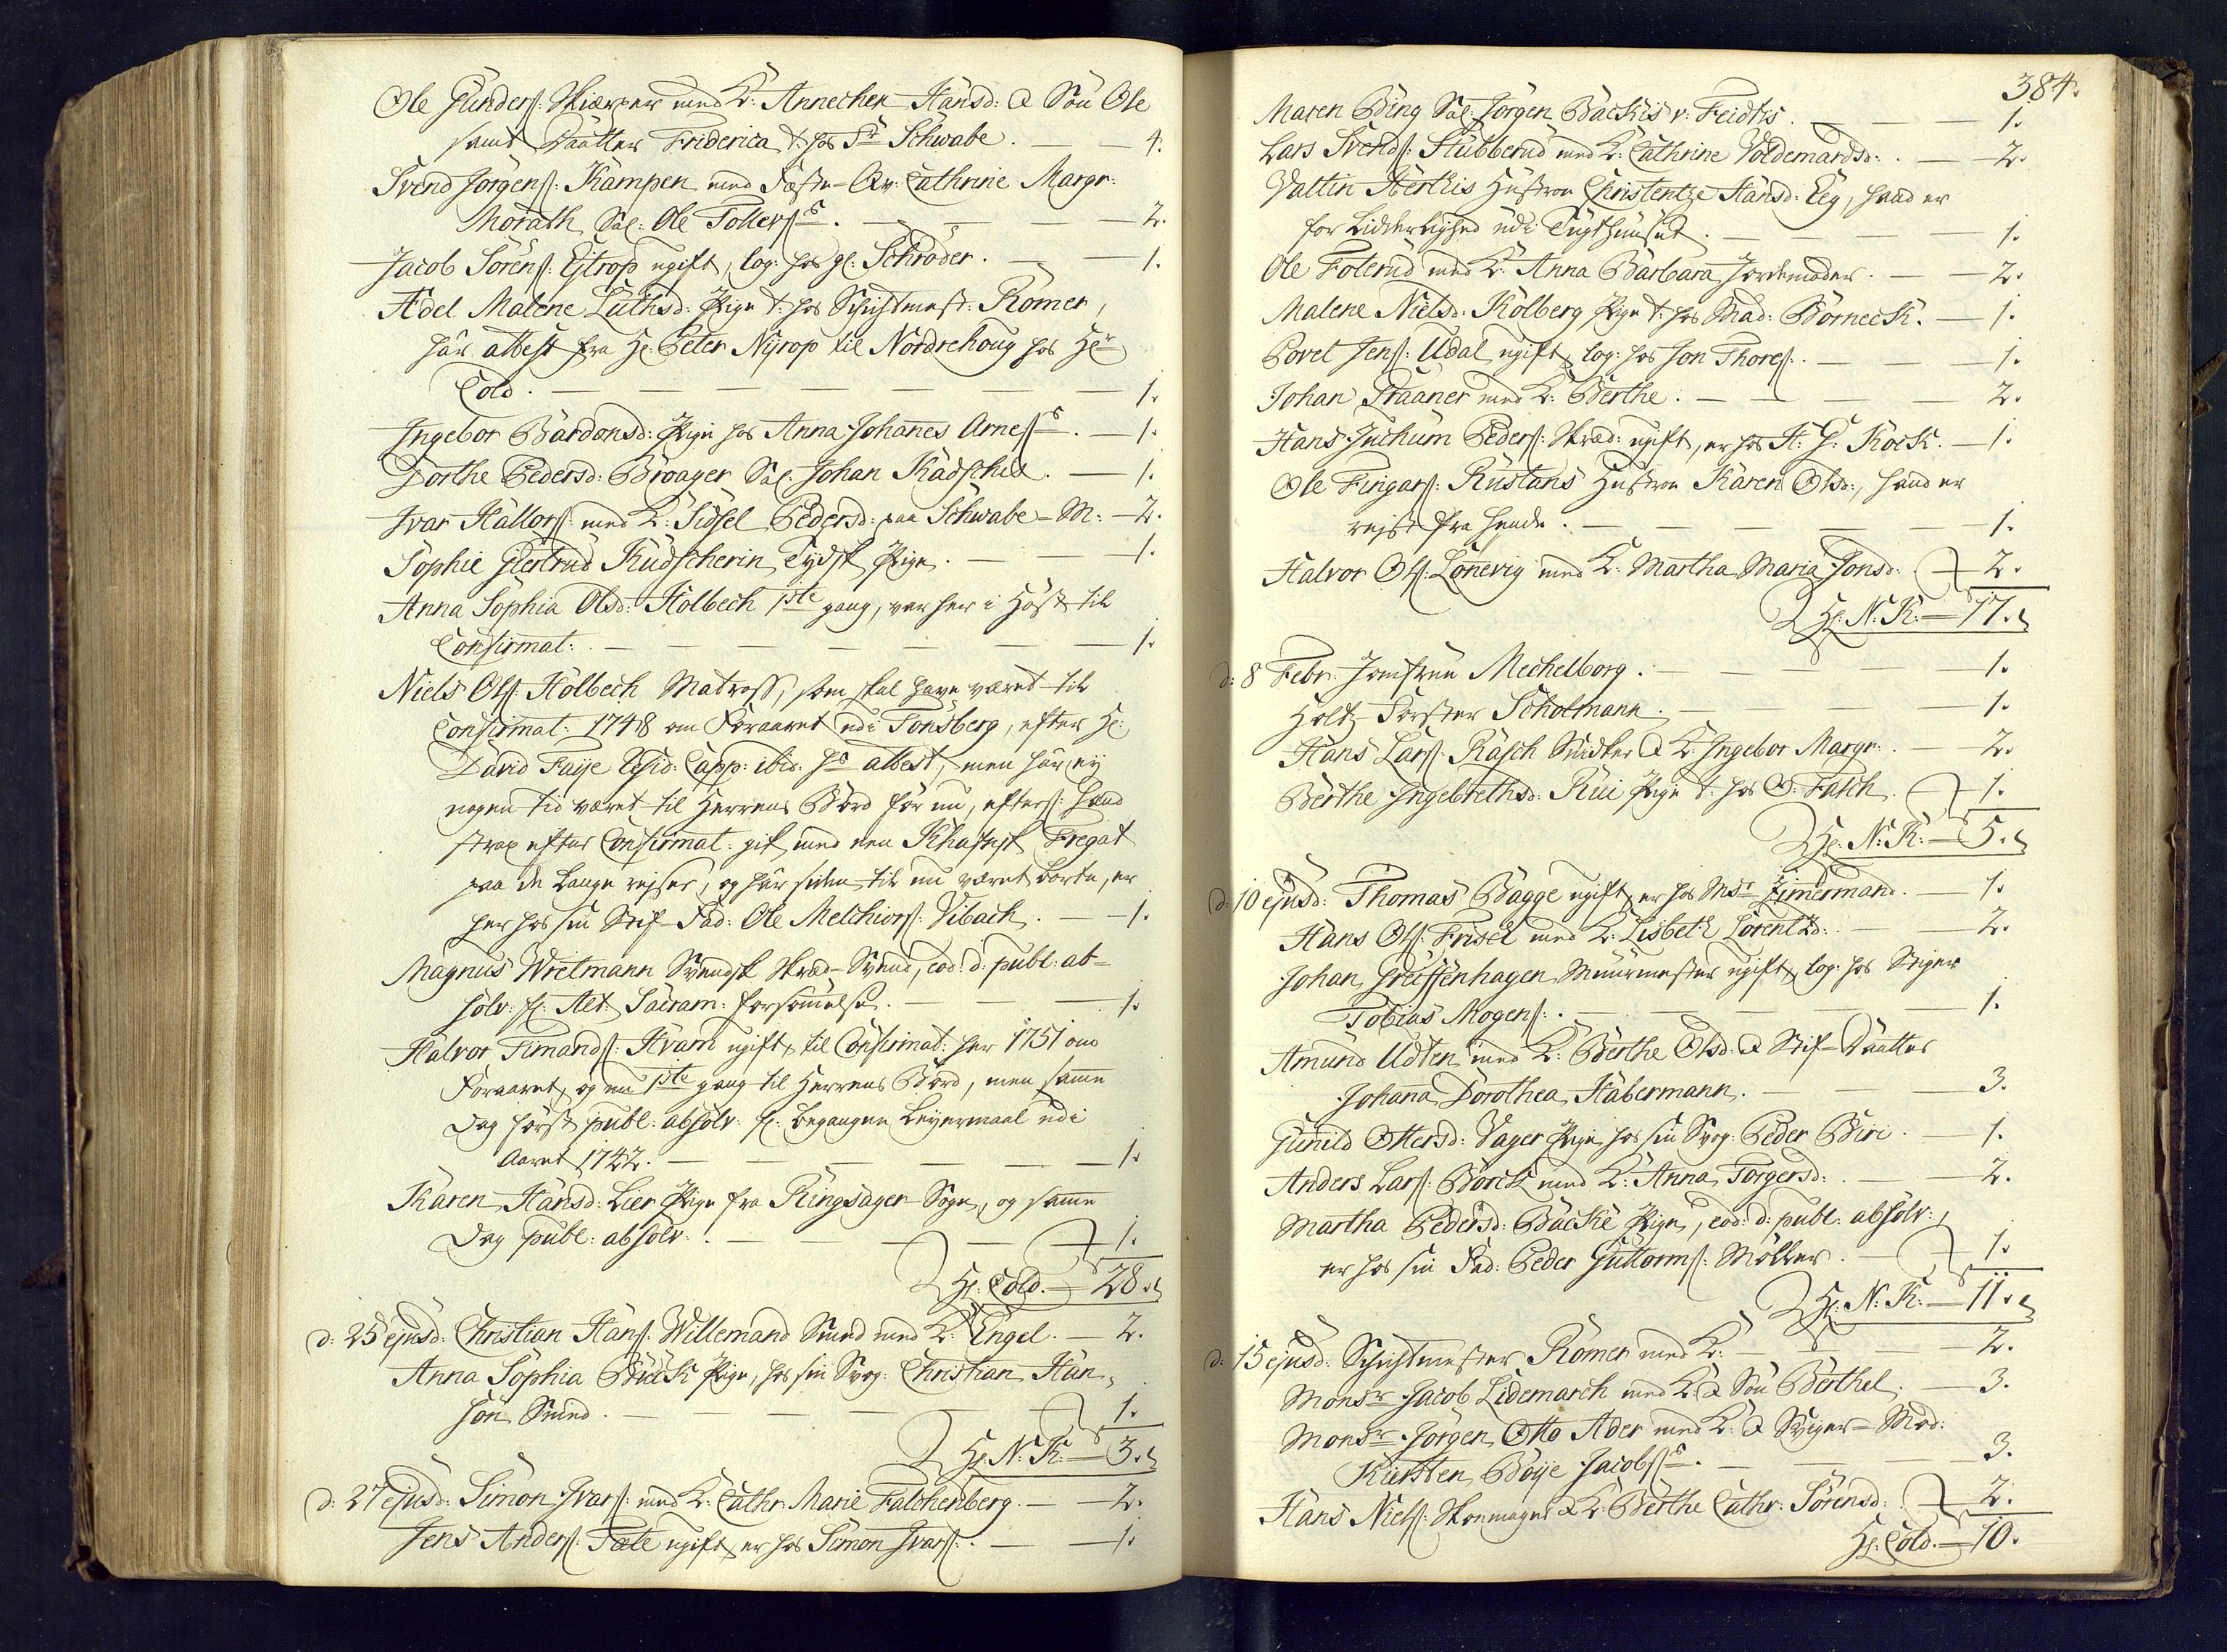 Ole Gunders: Skiærper med K: Annichen Hansd: & Søn Ole
samt Daatter Friderica t: hos Sr Schwabe. — — 4.
Svend Jörgens: Kampen med Fæste-Qv: Cathrine Margr:
Morath, Sal: Ole Tollers: — — — 2.
Jacob Sörens: Ejtrop ugift, log: hos gl: Schröder. — — 1.
Adel Malene Luthsd: Pige t: hos Schichtmest: Römer,
hâr attest fra Hr: Peter Nyrop til Nordrehoug hos Hr
Cold. — — — — — — — 1.
Ingebor Bårdonsd: Pige hos Anna Johanes Arnes: — 1.
Dorthe Pedersd: Broager Sal: Johan — 1.
Ivar Hallors: med K: Sidsel Pedersd: paa Schwabe-M: — 2.
Sophie Gertrud Kudscherin, Tydsk Pige. — — 1.
Anna Sophia Olsd: Holbech 1ste gang, var her i Høst til
Confirmat: — — — — — — — 1.
Niels Ols: Holbech Matross, som skal have været til
Confirmat: 1748 om Foraaret udi Tönsberg, efter Hr:
David Faye Resid: Capp: ibid: hs attest, men hâr ej
nogen tid været til Herrens Bord før nu, efters: hand
strax efter Confirmat: gik med een Fregat
paa de lange rejser, og hâr siden til nu været borte, er
her hos sin Stif-Fad: Ole Melchiors: Vibach. — — 1.
Magnus Wretmann Svendsk Skræd-Svend, eod: d: publ: ab-
solv: f: Alt: Sacram: Forsømmelse. — — — 1.
Halvor Fimands: Kvam ugift, til Confirmat: her 1751 om
Foraaret, og nu 1ste gang til Herrens Bord, men samme
Dag først publ: absolv: f: begangne Leyermaal udi
Aaret 1742. — — — — — — 1.
Karen Hansd: Lier Pige fra Ringsager Sogn, og samme
Dag publ: absolv: — — — — — 1.
Hr: Cold. — 28.
d: 25 ejusd: Christian Hans: Willemand Smed med K: Engel. — 2.
Anna Sophia Buck Pige, hos sin Svog: Christian Han,
søn Smed. — — — — — 1.
Hr: N: K: — 3.
d: 27 ejusd: Simon Ivars: med K: Cathr: Marie Falchenberg. — — 2.
Jens Anders: Tæle ugift, er hos Simon Ivars: — — 1.
384.
Maren Bing Sal: Jörgen Backis v: Feidtis. — — — 1.
Lars Svends: Stubberud med K: Cathrine Voldemardsd: — 2.
Valtin Hustroe Christentze Hansd: Eeg, hand er
for Liderlighed udi Tugthuuset. — — — 1.
Ole Folerud med K: Anna Barbara Jordemoder. — — 2.
Malene Nielsd: Kolberg Pige t: hos Mad: Börneck. — 1.
Povel Jens: Udal ugift, log: hos Jon Thores: — — — 1.
Johan Praaner med K: Berthe. — — — — 2.
Hans Juchum Peders: Skræd: ugift, er hos H: H: Kock. — 1.
Ole Fingars: Rustans Hustroe Karen Olsd:, hand er
rejst fra hende. — — — — — 1.
Halvor Ols: Lönevig med K: Martha Maria Jonsd: — 2.
Hr: N: K: — 17.
d: 8 Febr: Jomfrue Mechelborg. — — — 1.
Holtz-Förster Scholmann. — — — 1.
Hans Lars: Rasch Snidker & K: Ingebor Margr: — 2.
Berthe Ingebrethsd: Rui Pige t: hos O: Fasch. — 1.
Hr: N: K: — 5.
d: 10 ejusd: Thomas Bagge ugift, er hos Msr Zimermand. — 1.
Hans Ols: Frisel med K: Lisbeth Lorentzd: — — 2.
Johan Greiffenhagen Muurmester ugift, log: hos Stiger
Tobias Mogens: — — — — — 1.
Amund Udten med K: Berthe Olsd: & Stif-Daatter
Johana Dorothea Habermann. — — — 3.
Gunild Ottersd: Vager Pige, hos sin Svog: Peder Biri. — 1.
Anders Lars: Borck med K: Anna Torgersd: — — 2.
Martha Pedersd: Backe Pige, eod: d: publ: absolv:,
er hos sin Fad: Peder Guttorms: Möller. — 1.
Hr: N: K: — 11.
d: 15 ejusd: Schichtmester Römer med K: — — — 2.
Monsr Jacob Lidemarch med K: & Søn Berthel. — 3.
Monsr Jörgen Otto Ader med K: & Sviger-Mod:
Kirsten Boije Jacobs: — — — 3.
Hans Niels: Skomager & K: Berthe Cathr: Sörensd: — 2.
Hr: Cold. — 10.